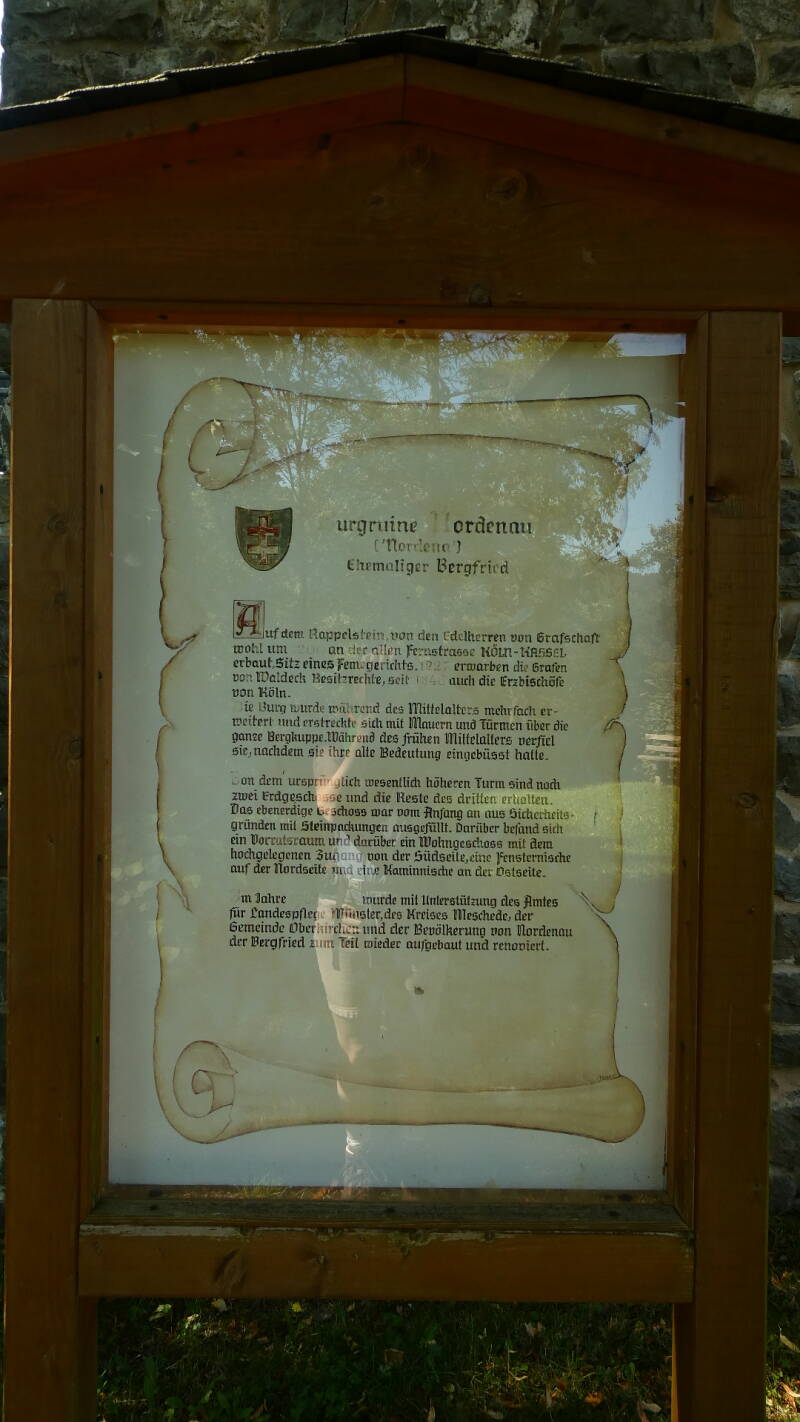 urgruine ordenau
("Nordena")
Ehemaliger Bergfried
Auf dem Rappelstein, von den Edelherren von Grafschaft
wohl um an der alten Fernstrasse KÖLN-KASSEL
erbaut. Sitz eines Femegerichts. erwarben die Grafen
von Waldeck Besitzrechte, seit auch die Erzbischöfe
von Köln.
ie Burg wurde während des Mittelalters mehrfach er-
weitert und erstreckte sich mit Mauern und Türmen über die
ganze Bergkuppe. Während des frühen Mittelalters verfiel
sie, nachdem sie ihre alte Bedeutung eingebüsst hatte.
on dem ursprünglich wesentlich höheren Turm sind noch
zwei Erdgeschosse und die Reste des dritten erhalten.
Das ebenerdige Geschoss war vom Anfang an aus Sicherheits-
gründen mit Steinpackungen ausgefüllt. Darüber befand sich
ein Vorratsraum und darüber ein Wohngeschoss mit dem
hochgelegenen Zugang von der Südseite, eine Fensternische
auf der Nordseite und eine Kaminnische an der Ostseite.
m Jahre wurde mit Unterstützung des Amtes
für Landespflege Münster, des Kreises Meschede, der
Gemeinde Oberkirchen und der Bevölkerung von Nordenau
der Bergfried zum Teil wieder aufgebaut und renoviert.